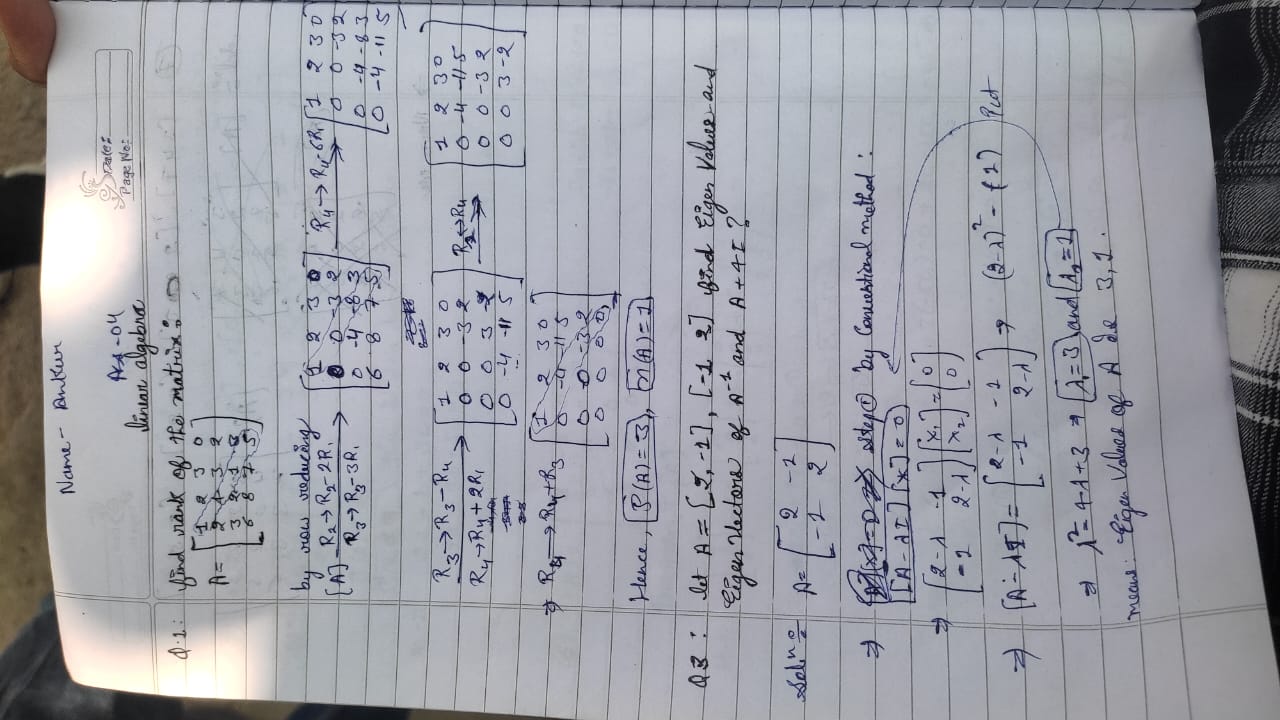 Name - Ankur
Date:
Page No:
Ass -04
linear algebra
Q.1: find rank of the matrix:
A = [1 2 3 0
2 4 3 2
3 2 1 3
6 8 7 5]
by row reducing
[A] R2 → R2-2R1
R3 → R3-3R1
[1 2 3 0
0 0 -3 2
0 -4 -8 3
6 8 7 5]
R4 → R4-6R1
[1 2 3 0
0 0 -3 2
0 -4 -8 3
0 -4 -11 5
R3 → R3-R4
R4 → R4+2R1
[1 2 3 0
0 0 -3 2
0 0 3 -2
0 -4 -11 5]
R2↔R4
[1 2 3 0
0 -4 -11 5
0 0 -3 2
0 0 3 -2]
⇒ R4 → R4+R3
[1 2 3 0
0 -4 -11 5
0 0 -3 2
0 0 0 0]
Hence, ρ(A) = 3, n(A) = 1
Q.3: let A = [2, -1], [-1 2] find Eigen Values and
Eigen Vectors of A⁻¹ and A+4I?
Solnno A = [2 -1
-1 2]
⇒ step① by Conventional method:
[A-λI][x] = 0
⇒ [2-λ -1
-1 2-λ] [x1
x2] = [0
0]
⇒ [A-λI] = [2-λ -1
-1 2-λ] ⇒ (2-λ)² - (1) Put
⇒ λ² = 4-λ+3 ⇒ λ1 = 3 and λ2 = 1
means: Eigen Values of A is 3, 1.